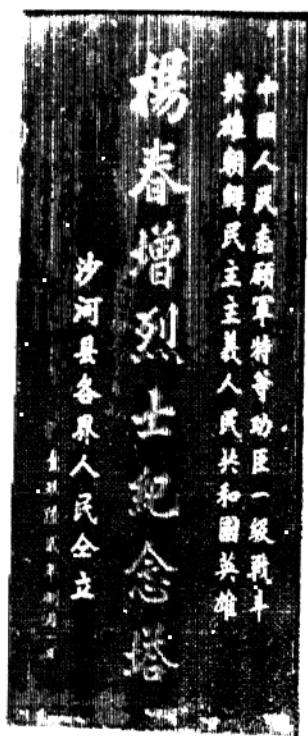 中國人民志願軍特等功臣一級戰斗
英雄朝鮮民主主義人民共和國英雄
楊春增烈士紀念塔
沙河县各界人民仝立